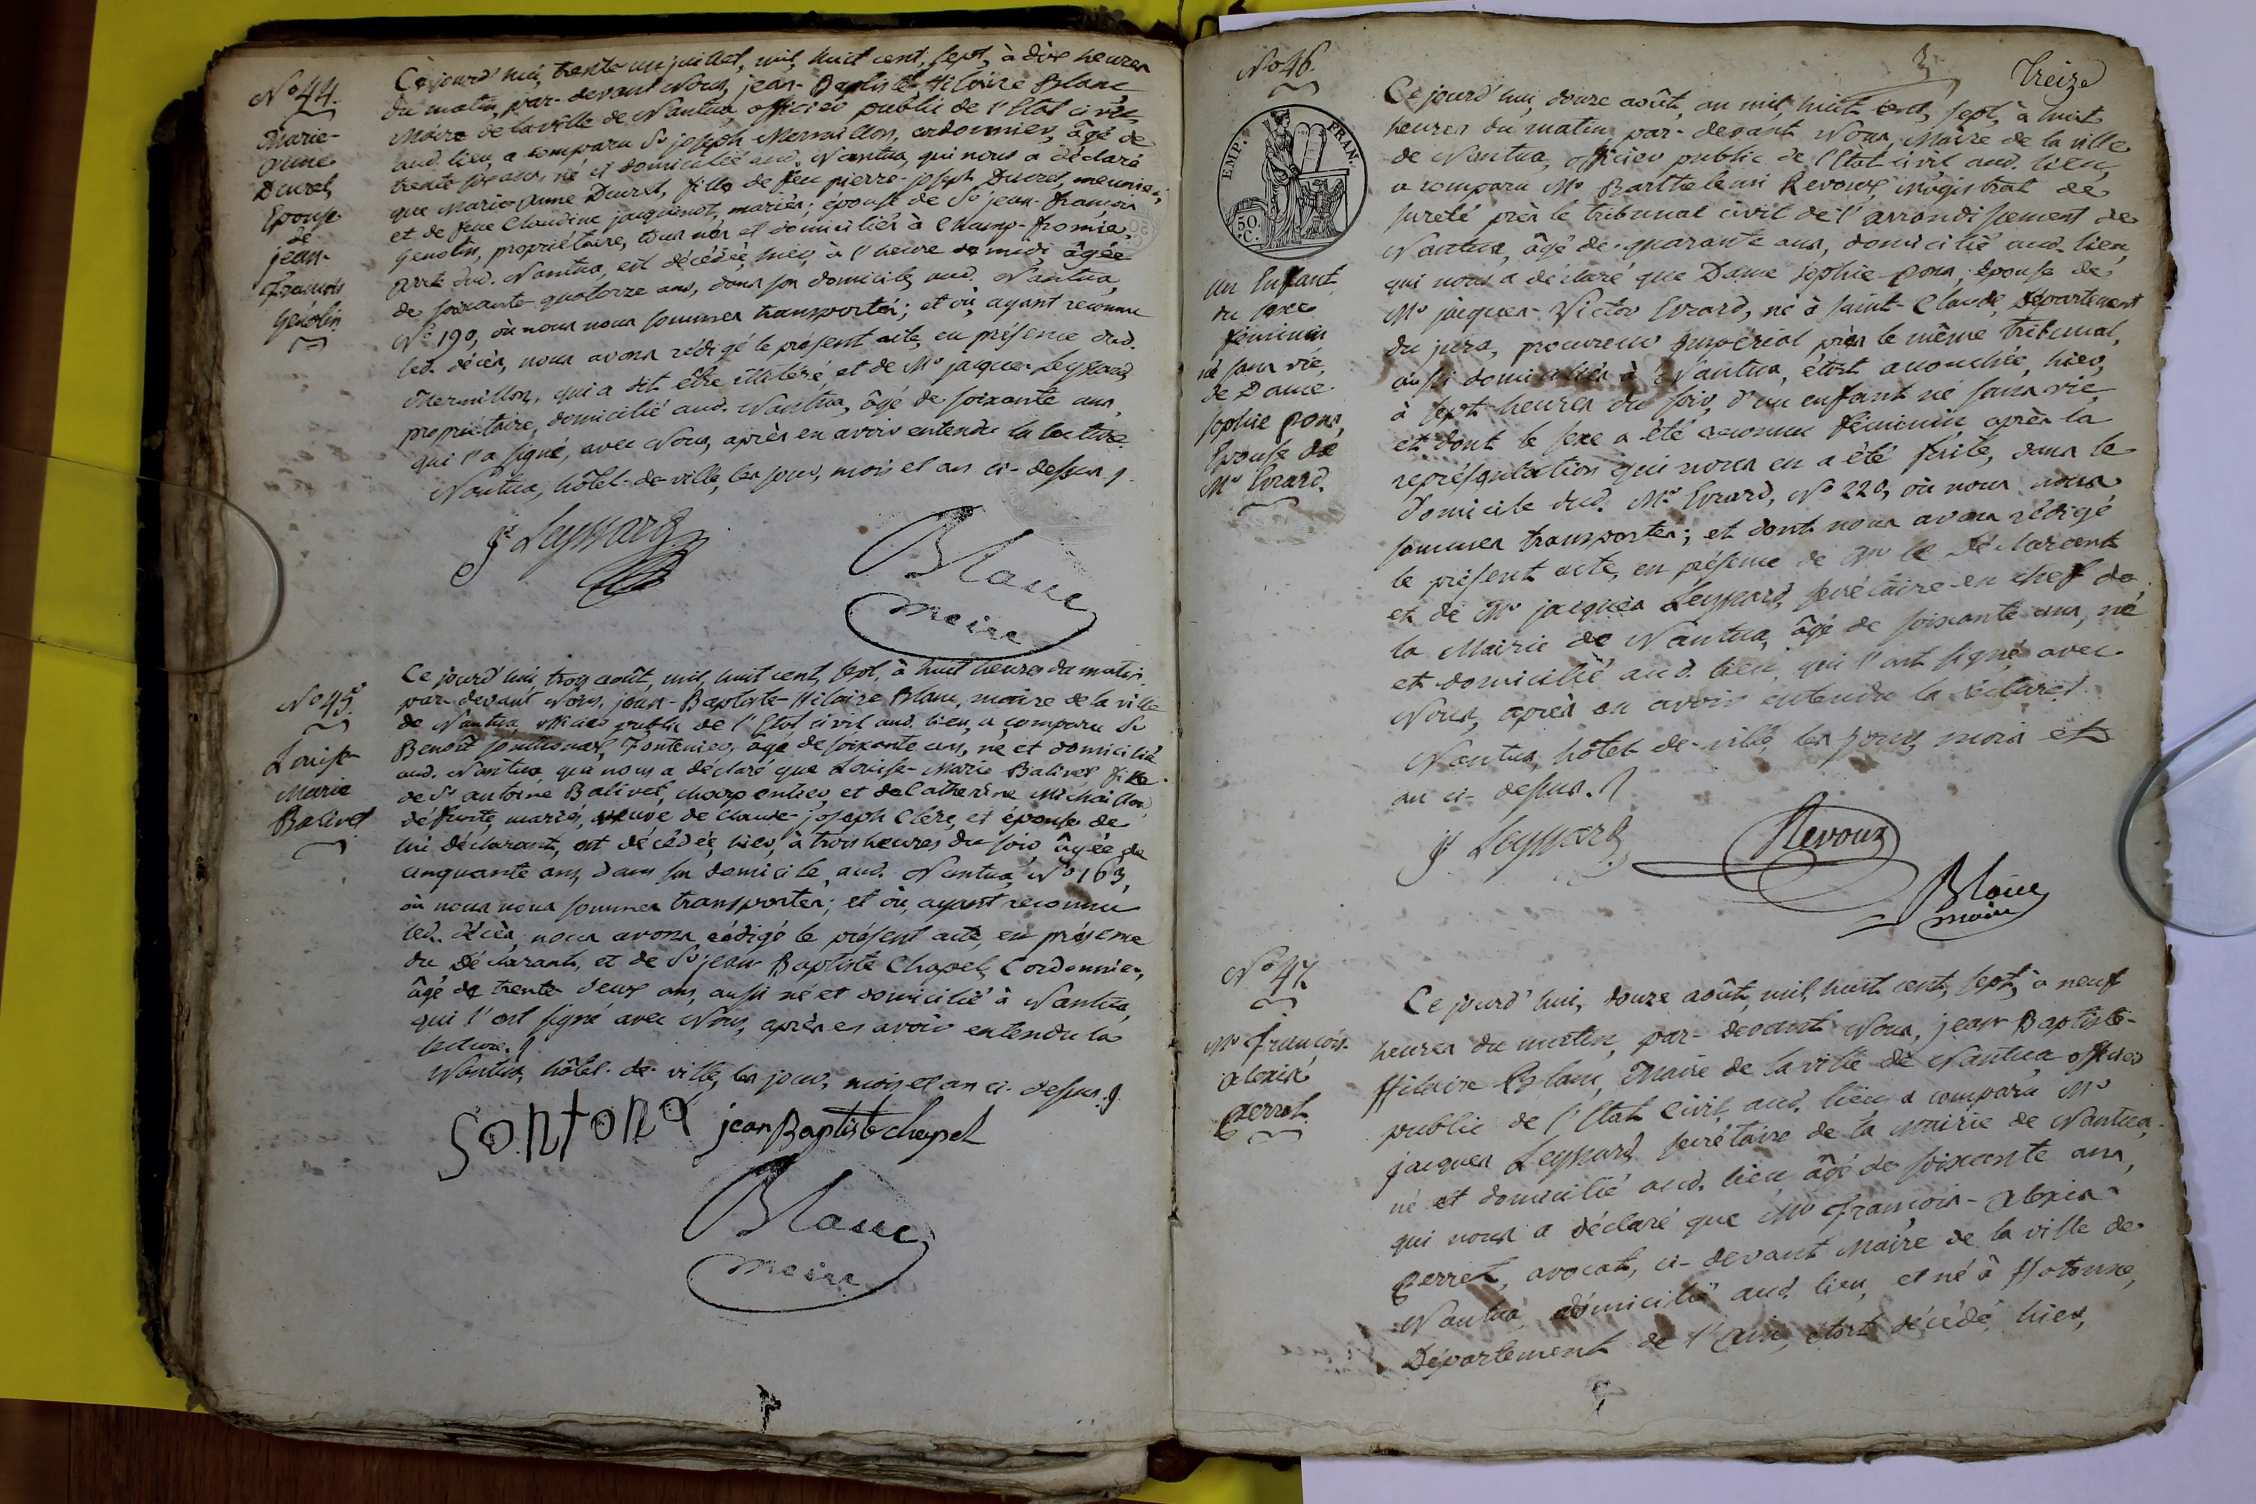 No 44.
Marie-
anne
Ducret,
Epouse
de
jean-
françois
Genolin
Ce jourd'hui, trente un juillet, mil, huit cent, sept, à dix heures
du matin, par-devant Nous, jean-Baptiste Hilaire Blanc
Maire de la ville de Nantua, officier public de l'Etat civil
aud. lieu, a comparu Sr joseph Mermillon, cordonnier, âgé de
trente six ans, né et domicilié aud. Nantua, qui nous a déclaré
que Marie-anne Ducret, fille de feu pierre-joseph Ducret, meunier,
et de feue Claudine jacquenot, mariés; épouse de Sr jean-françois
Genolin, propriétaire, tous nés et domiciliés à Champ-fromier,
dud. Nantua, est décédée, hier, à l'heure de midi, âgée
de soixante-quatorze ans, dans son domicile, aud. Nantua,
No 190, où nous nous sommes transportés; et où, ayant reconnu
led. décès, nous avons rédigé le présent acte, en présence dud.
Mermillon, qui a dit être illitéré, et de Mr jacques Leyssard,
propriétaire, domicilié aud. Nantua, âgé de soixante ans,
qui l'a signé, avec Nous, après en avoir entendu la lecture.
Nantua, hôtel-de-ville, les jour, mois et an ci-dessus.
js Leyssard
Blanc
maire
No 45.
Louise-
Marie
Balivet
Ce jourd'hui trois août, mil, huit cent, sept, à huit heures du matin,
par-devant Nous, jean-Baptiste-Hilaire Blanc, maire de la ville
de Nantua, officier public de l'Etat civil aud. lieu, a comparu Sr
Benoît Fontenier, âgé de soixante ans, né et domicilié
aud. Nantua, qui nous a déclaré que Louise-Marie Balivet fille
de Sr antoine Balivet, charpentier, et de Catherine Michaillon,
défunte, mariés, veuve de Claude-joseph Clerc, et épouse de
lui déclarant, est décédée, hier, à trois heures du soir, âgée de
cinquante ans, dans son domicile, aud. Nantua, No 163,
où nous nous sommes transportés; et où, ayant reconnu
led. décès, nous avons rédigé le présent acte, en présence
du Déclarant, et de Sr jean Baptiste Chapel, Cordonnier,
âgé de trente deux ans, aussi né et domicilié à Nantua,
qui l'ont signé avec Nous, après en avoir entendu la
lecture.
Nantua, hôtel-de-ville, les jour, mois et an ci-dessus.
Sontona jean Baptiste chapel
Blanc
maire
No 46.
Treize
EMP. FRAN.
50.
C.
un Enfant
du sexe
féminin
né sans vie,
de Dame
sophie pons,
Epouse de
Mr Evrard.
Ce jourd'hui, douze août, an mil, huit cent, sept, à huit
heures du matin, par-devant Nous, Maire de la ville
de Nantua, officier public de l'Etat civil aud. lieu,
a comparu Mr Barthelemi Revoux, Magistrat de
sureté près le tribunal civil de l'arrondissement de
Nantua, âgé de quarante ans, domicilié aud. lieu,
qui nous a déclaré que Dame sophie-pons, épouse de
Mr jacques-Victor Evrard, né à saint-Claude, Département
du jura, procureur impérial près le même tribunal,
aussi domiciliés à Nantua, étoit accouchée, hier,
à sept heures du soir, d'un enfant né sans vie,
et dont le sexe a été reconnu féminin, après la
représentation qui nous en a été faite, dans le
domicile dud. Mr Evrard, No 220, où nous nous
sommes transportés; et dont nous avons rédigé
le présent acte, en présence de Mr le Déclarant
et de Mr jacques Leyssard, secrétaire-en chef de
la Mairie de Nantua, âgé de soixante ans, né
et domicilié aud. lieu, qui l'ont signé avec
Nous, après en avoir entendu la lecture.
Nantua, hôtel-de-ville, les jour, mois et
an ci-dessus.
js Leyssard
Revoux
Blanc
maire
No 47.
Mr françois-
alexis
perret.
Ce jourd'hui, douze août, mil, huit cent, sept, à neuf
heures du matin, par-devant Nous, jean Baptiste-
Hilaire Blanc, Maire de la ville de Nantua officier
public de l'Etat Civil aud. lieu, a comparu Mr
jacques Leyssard, secrétaire de la mairie de Nantua,
né et domicilié aud. lieu, âgé de soixante ans,
qui nous a déclaré que Mr françois-alexis
perret, avocat, ci-devant Maire de la ville de
Nantua, domicilié aud. lieu, et né à Hotonne,
Département de l'ain, étoit décédé, hier,